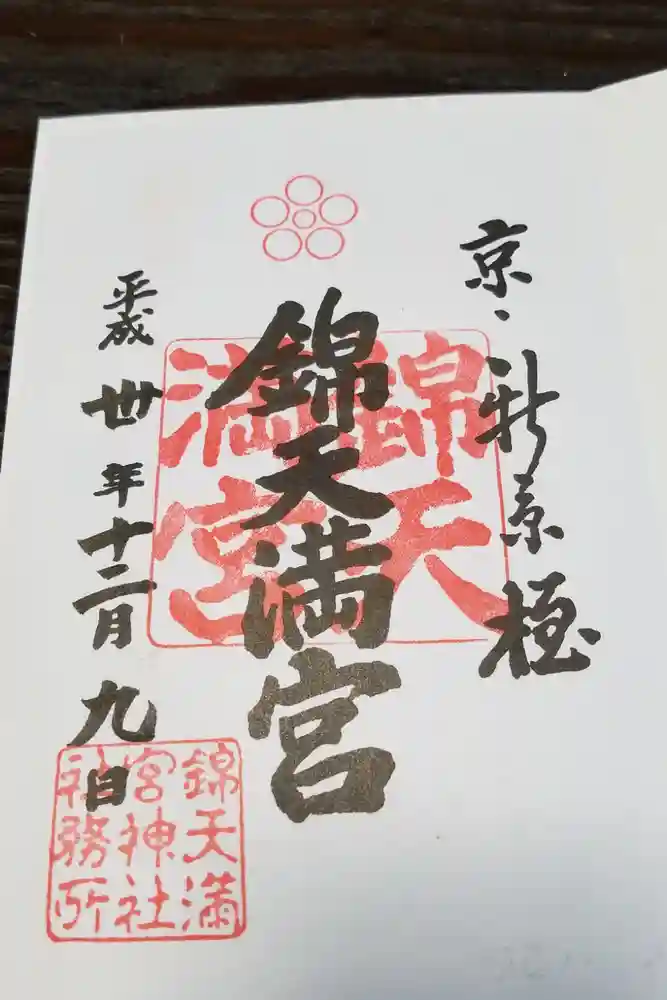 京・新京極
錦天満宮
錦天
満宮
平成卅年十二月九日
錦天満
宮神社
社務所